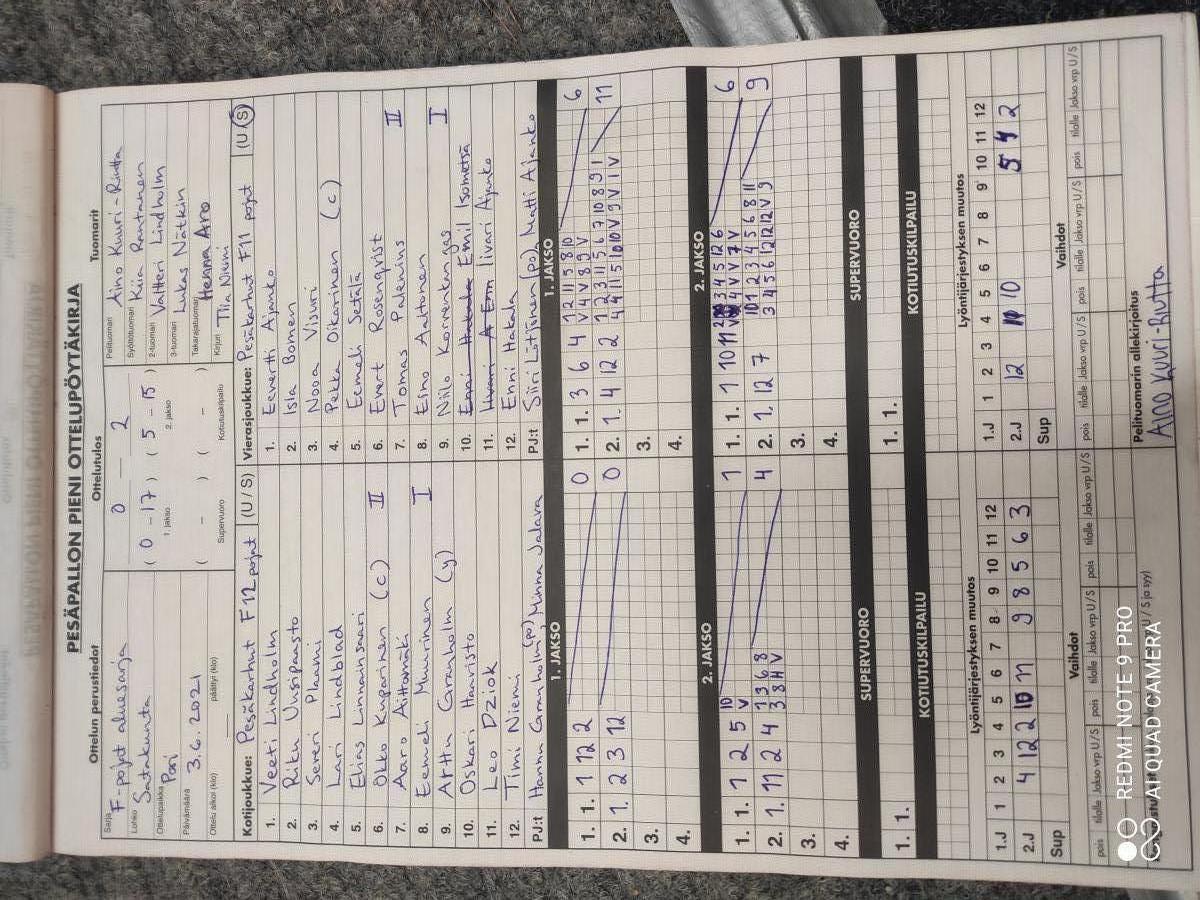 PESÄPALLON PIENI OTTELUPÖYTÄKIRJA
Ottelun perustiedot
Sarja F-pojat aluesarja
Lohko Satakunta
Ottelupaikka Pori
Päivämäärä 3.6.2021
Ottelu alkoi (klo) päättyi (klo)
Ottelutulos
0 — 2
( 0 - 17 ) ( 5 - 15 )
1. jakso 2. jakso
( - ) ( - )
Supervuoro Kotiutuskilpailu
Tuomarit
Pelituomari Aino Kuuri-Riutta
Syöttötuomari Kiia Rantanen
2-tuomari Valtteri Lindholm
3-tuomari Lukas Natkin
Takarajatuomari Henna Aro
Kirjuri Tiia Niemi
Kotijoukkue: Pesäkarhut F12 pojat (U / S)
1. Veeti Lindholm
2. Riku Uusipaasto
3. Sereri Plaami
4. Lari Lindblad
5. Elias Linnansaari
6. Okko Kuparinen (c) II
7. Aaro Aittomäki
8. Eemeli Muurinen I
9. Arttu Carnholm (y)
10. Oskari Haavisto
11. Leo Dziok
12. Timi Niemi
PJ:t Hannu Carnholm (po), Minna Jalava
Vierasjoukkue: Pesäkarhut F11 pojat (U / S)
1. Eevertti Ajanko
2. Isla Bomen
3. Nooa Visuri
4. Pekka Oikarinen (c)
5. Eemeli Setälä
6. Evert Rosenqvist
7. Tomas Palenius II
8. Eino Aaltonen
9. Niilo Korvenkangas I
10. Enni Hakala Emil Isometsä
11. Iivari Ajanko
12. Enni Hakala
PJ:t Siiri Lotjonen (po), Matti Ajanko
1. JAKSO
1. 1. 1 12 2 0
2. 1. 2 3 12 0
3.
4.
2. JAKSO
1. 1. 1 2 5 10 V 1
2. 1. 11 2 4 1 3 6 8 4
3 8 H V
3.
4.
SUPERVUORO
1. 1.
KOTIUTUSKILPAILU
1. JAKSO
1. 1. 3 6 4 1 2 11 5 8 10 6
V 4 V 8 9 V
2. 1. 4 12 2 1 2 3 11 5 6 7 10 8 9 1 11
4 4 11 5 10 10 V 9 V 1 V
3.
4.
2. JAKSO
1. 1. 1 10 11 2 3 4 5 12 6 6
V 4 V V 7 V
2. 1. 12 7 10 1 2 3 4 5 6 8 11 9
3 4 5 6 12 12 12 V 9
3.
4.
SUPERVUORO
1. 1.
KOTIUTUSKILPAILU
Lyöntijärjestyksen muutos
1.J 1 2 3 4 5 6 7 8 9 10 11 12
2.J 4 12 2 10 11 9 8 5 6 3
Sup
Vaihdot
pois tilalle Jakso vrp U / S pois tilalle Jakso vrp U / S pois tilalle Jakso vrp U / S
Lyöntijärjestyksen muutos
1.J 1 2 3 4 5 6 7 8 9 10 11 12
2.J 12 10 5 4 2
Sup
Vaihdot
pois tilalle Jakso vrp U / S pois tilalle Jakso vrp U / S pois tilalle Jakso vrp U / S
U / S ja syy)
Pelituomarin allekirjoitus
Aino Kuuri-Riutta
REDMI NOTE 9 PRO
AI QUAD CAMERA